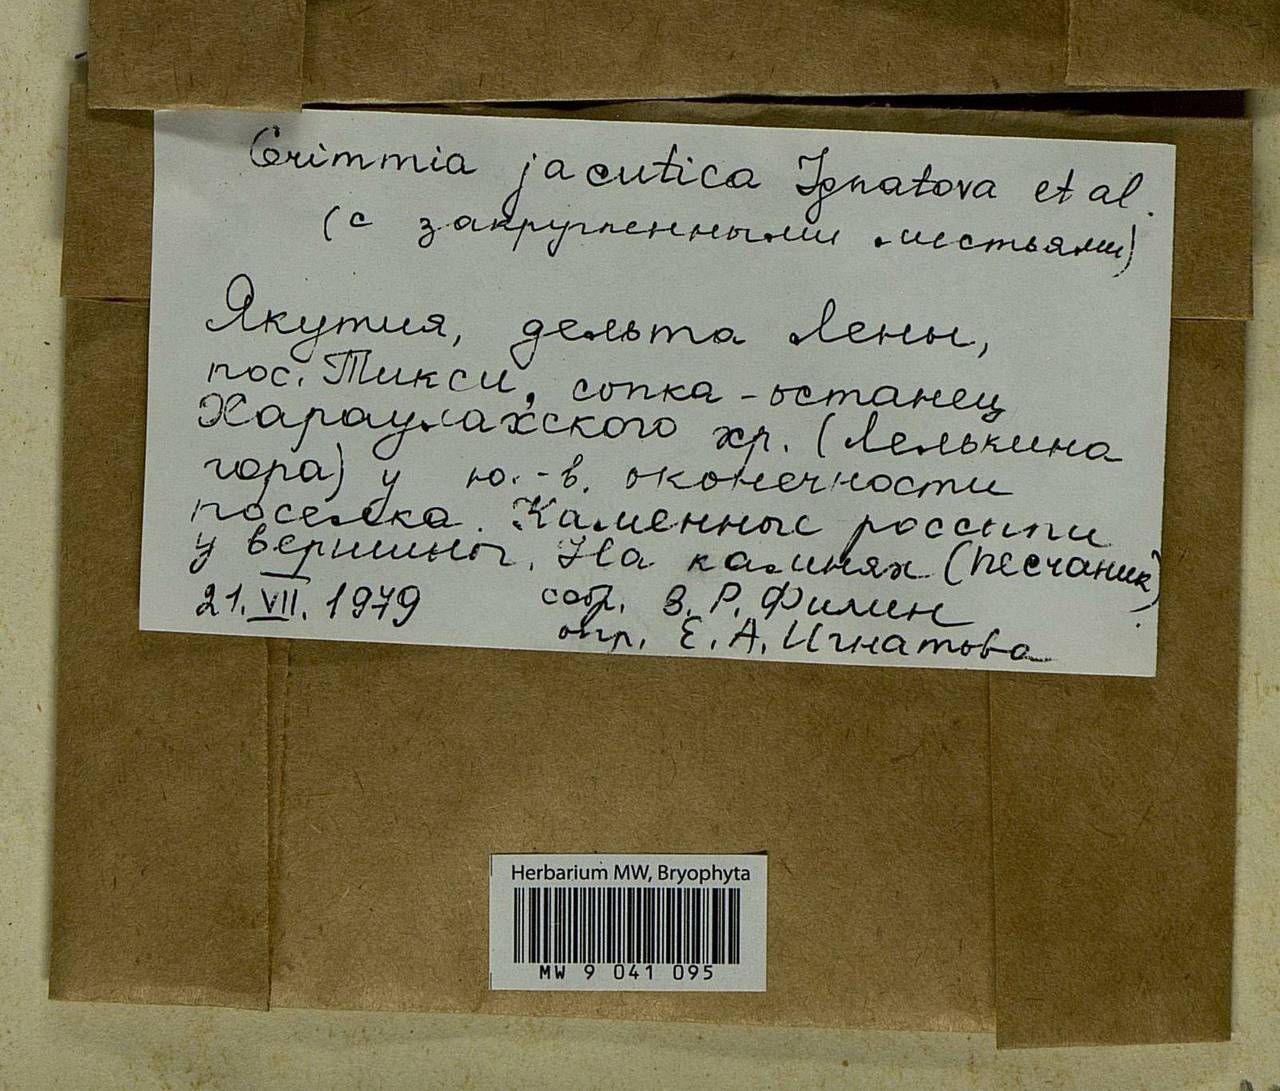 Grimmia jacutica Ignatova et al.
(с закругленными листьями)
Якутия, дельта Лены,
пос. Тикси, сопка-останец
Хараулахского хр. (Лелькина
гора) у ю.-в. оконечности
поселка. Каменные россыпи
у вершины. На камнях (песчаник)
21.VII.1979 собр. В. Р. Филин
опр. Е. А. Игнатова
Herbarium MW, Bryophyta
MW 9 041 095